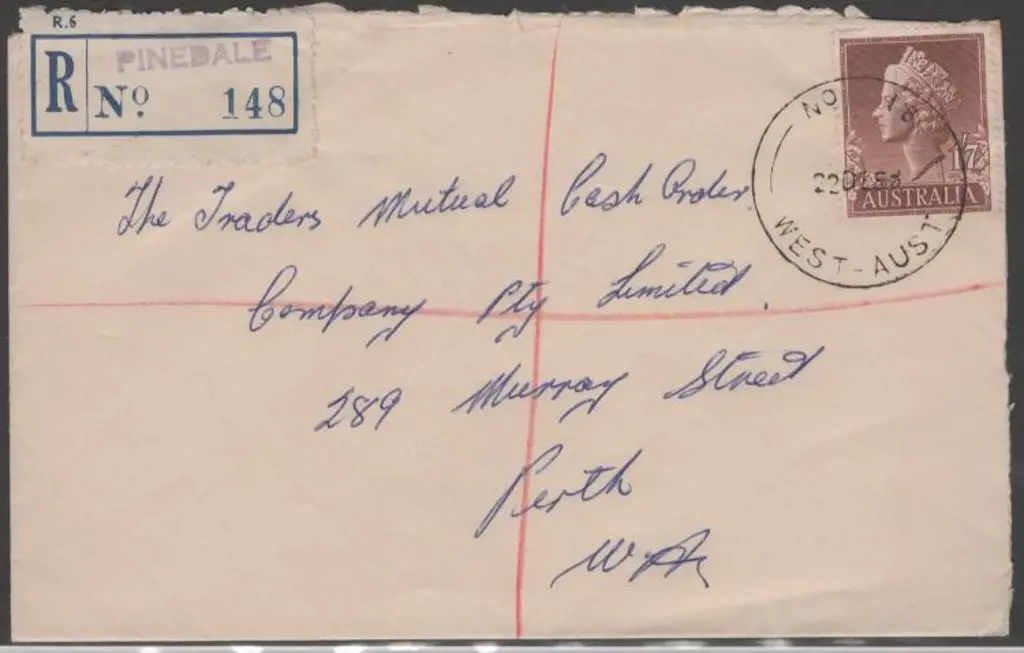 R.6
PINEDALE
R No. 148
No 18
22 DE 58
WEST-AUST
1/7
AUSTRALIA
The Traders Mutual Cash Order
Company Pty Limited.
289 Murray Street
Perth
W.A.